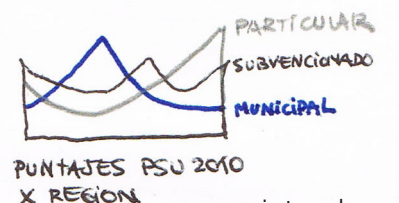 PARTICULAR
SUBVENCIONADO
MUNICIPAL
PUNTAJES PSU 2010
X REGION